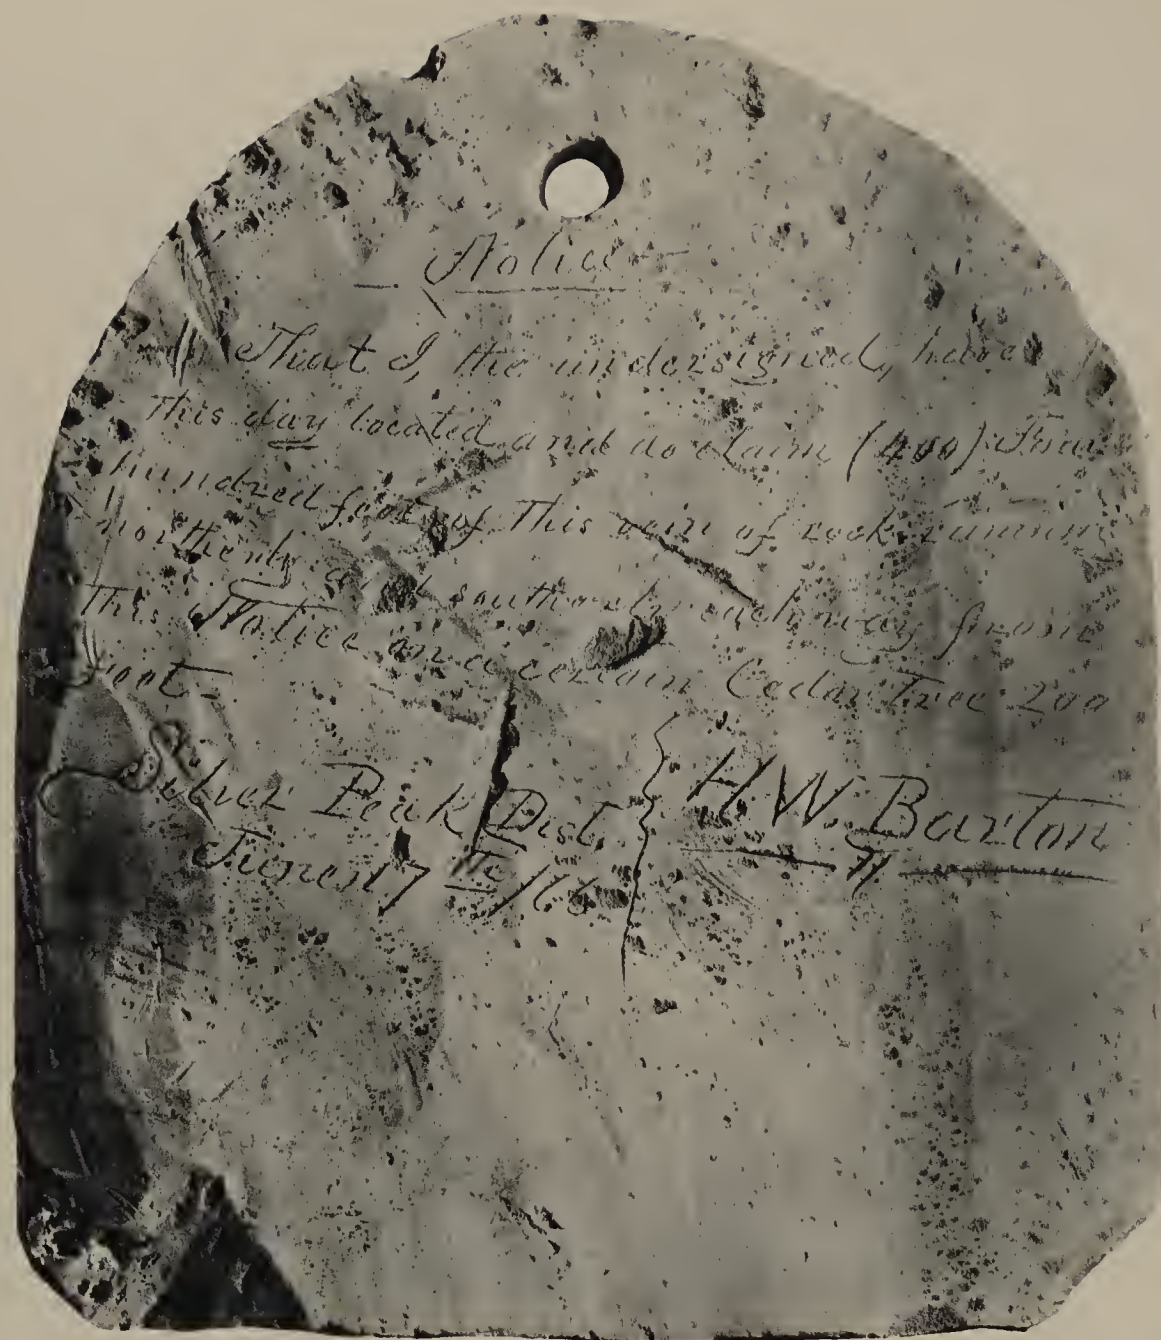 Notice
That I, the undersigned, have
this day located and do claim (400) Four
hundred feet of this vein of rock running
northerly and southerly each way from
This Notice on a certain Cedar Tree 200
foot
Silver Peak Dist.
June 17th /
H. W. Barton